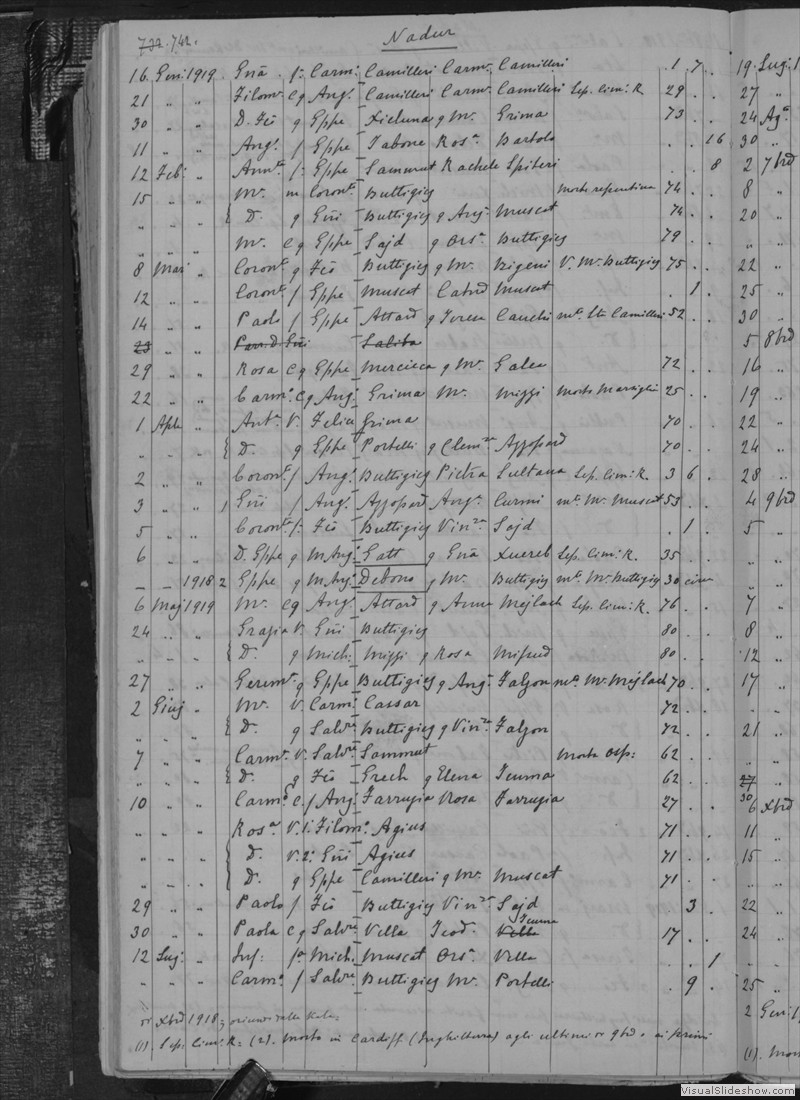 732. 742. Nadur
16 Gen 1919 Gnã f. Carm. Camilleri Carm. Camilleri . 1 7 . . 19 Lug.
21 " " Filom. C q Ang. Camilleri Carm. Camilleri Sep. Cim: R. 29 . . 27 "
30 " " D. Fco q Eppe Xicluna q Mr. Grima 73 . . 24 Ag.
11 " " Ang. f Eppe Tabone Rosa Bartolo . . 16 30 "
12 Feb: " Annta f: Eppe Sammut Rachele Spiteri . . 8 2 7brd
15 " " Mr. m Coronto Buttigieg morte repentina 74 . . 8 "
" " " D. q Gnĩ Buttigieg q Ang. Muscat 74 . . 20 "
" " " Mr. C q Eppe Sajd q Orsa Buttigieg 79 . .
8 Mar " Coronto q Fco Buttigieg q Mr. Bigeni V. Mr. Buttigieg 75 . . 22 "
12 " " Coronto f Eppe Muscat Catnd Muscat . 1 . 25 "
14 " " Paolo f Eppe Attard q Teresa Cauchi mto Camilleri 52 . . 30 "
23 " " D. Gnĩ Saliba 5 8brd
29 " " Rosa C q Eppe Mercieca q Mr. Galea 72 . . 16 "
22 " " Carm. C q Ang. Grima Mr. Mizzi 25 . . 19 "
1 Aple " Anta V. Felice Grima 70 . . 22 "
" " " D. q Eppe Portelli q Clemza Azzopard 70 . . 24 "
2 " " Coronto f Ang. Buttigieg Pietra Sultana Sep. Cim: R. 3 6 . 28 "
3 " " 1 Gnĩ f Ang. Azzopard Ang. Curmi mto Mr. Muscat 53 . . 4 9brd
5 " " Coronto f: Fco Buttigieg Vinza Sajd . 1 . 5 "
6 " " D. Eppe q M Ang. Gatt q Gnã Xuereb Sep. Cim: R. 35 . . " "
_ _ 1918 2 Eppe q M Ang. Debono q Mr. Buttigieg mto Mr. Buttigieg 30 circa " "
6 Maj 1919 Mr. C q Ang. Attard q Anna Mejlach Sep. Cim: R. 76 . . 7 "
24 " " Grazia V. Gnĩ Buttigieg 80 . . 8 "
" " " D. q Mich. Mizzi q Rosa Mifsud 80 . . 12 "
27 " " Geremo q Eppe Buttigieg q Ang. Falzon mto Mr. Mejlach 70 . . 17 "
2 Giug " Mr. V. Carm. Cassar 72 . . " "
" " " D. q Salvre Buttigieg q Vinza Falzon 72 . . 21 "
7 " " Carma V. Salvre Sammut Morta Osp: 62 . . " "
" " " D. q Fco Grech q Elena Teuma 62 . . 27 "
10 " " Carma C. f Ang. Farrugia Rosa Farrugia 27 . . 30 6 Xbrd
" " " Rosa V. 1: Filomo Agius 71 . . 11 "
" " " D. V. 2: Gnĩ Agius 71 . . 15 "
" " " D. q Eppe Camilleri q Mr. Muscat 71 . . "
29 " " Paolo f Fco Buttigieg Vinza Sajd . 3 . 22 "
30 " " Paola C q Salvre Vella Teod. Vella Teuma 17 . . 24 "
12 Lug. " Inf: fo Mich. Muscat Orsa Vella . . 1 " "
" " " Carma f Salvre Buttigieg Mr. Portelli . 9 . 25 "
Xbrd 1918; dalla Kala. 2 Gen
(1) Sep. Cim: R. (2). Morto in Cardiff (Inghilterra) agli ultimi 9brd o ai primi (1). Mor
VisualSlideshow.com